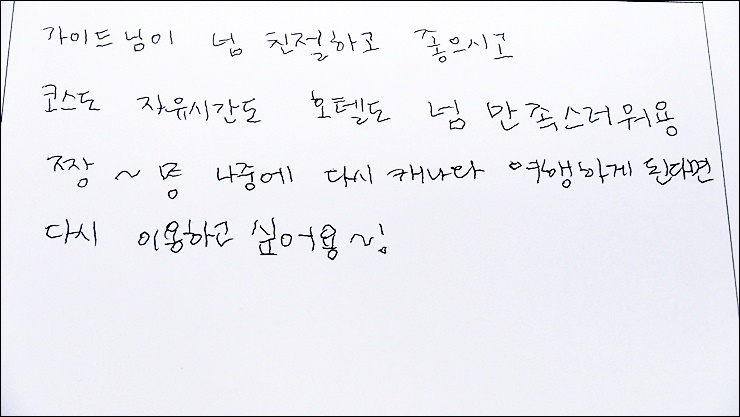 가이드님이 넘 친절하고 좋으시고
코스도 자유시간도 호텔도 넘 만족스러워용
짱~ 용 나중에 다시 캐나다 여행하게 된다면
다시 이용하고 싶어용~!